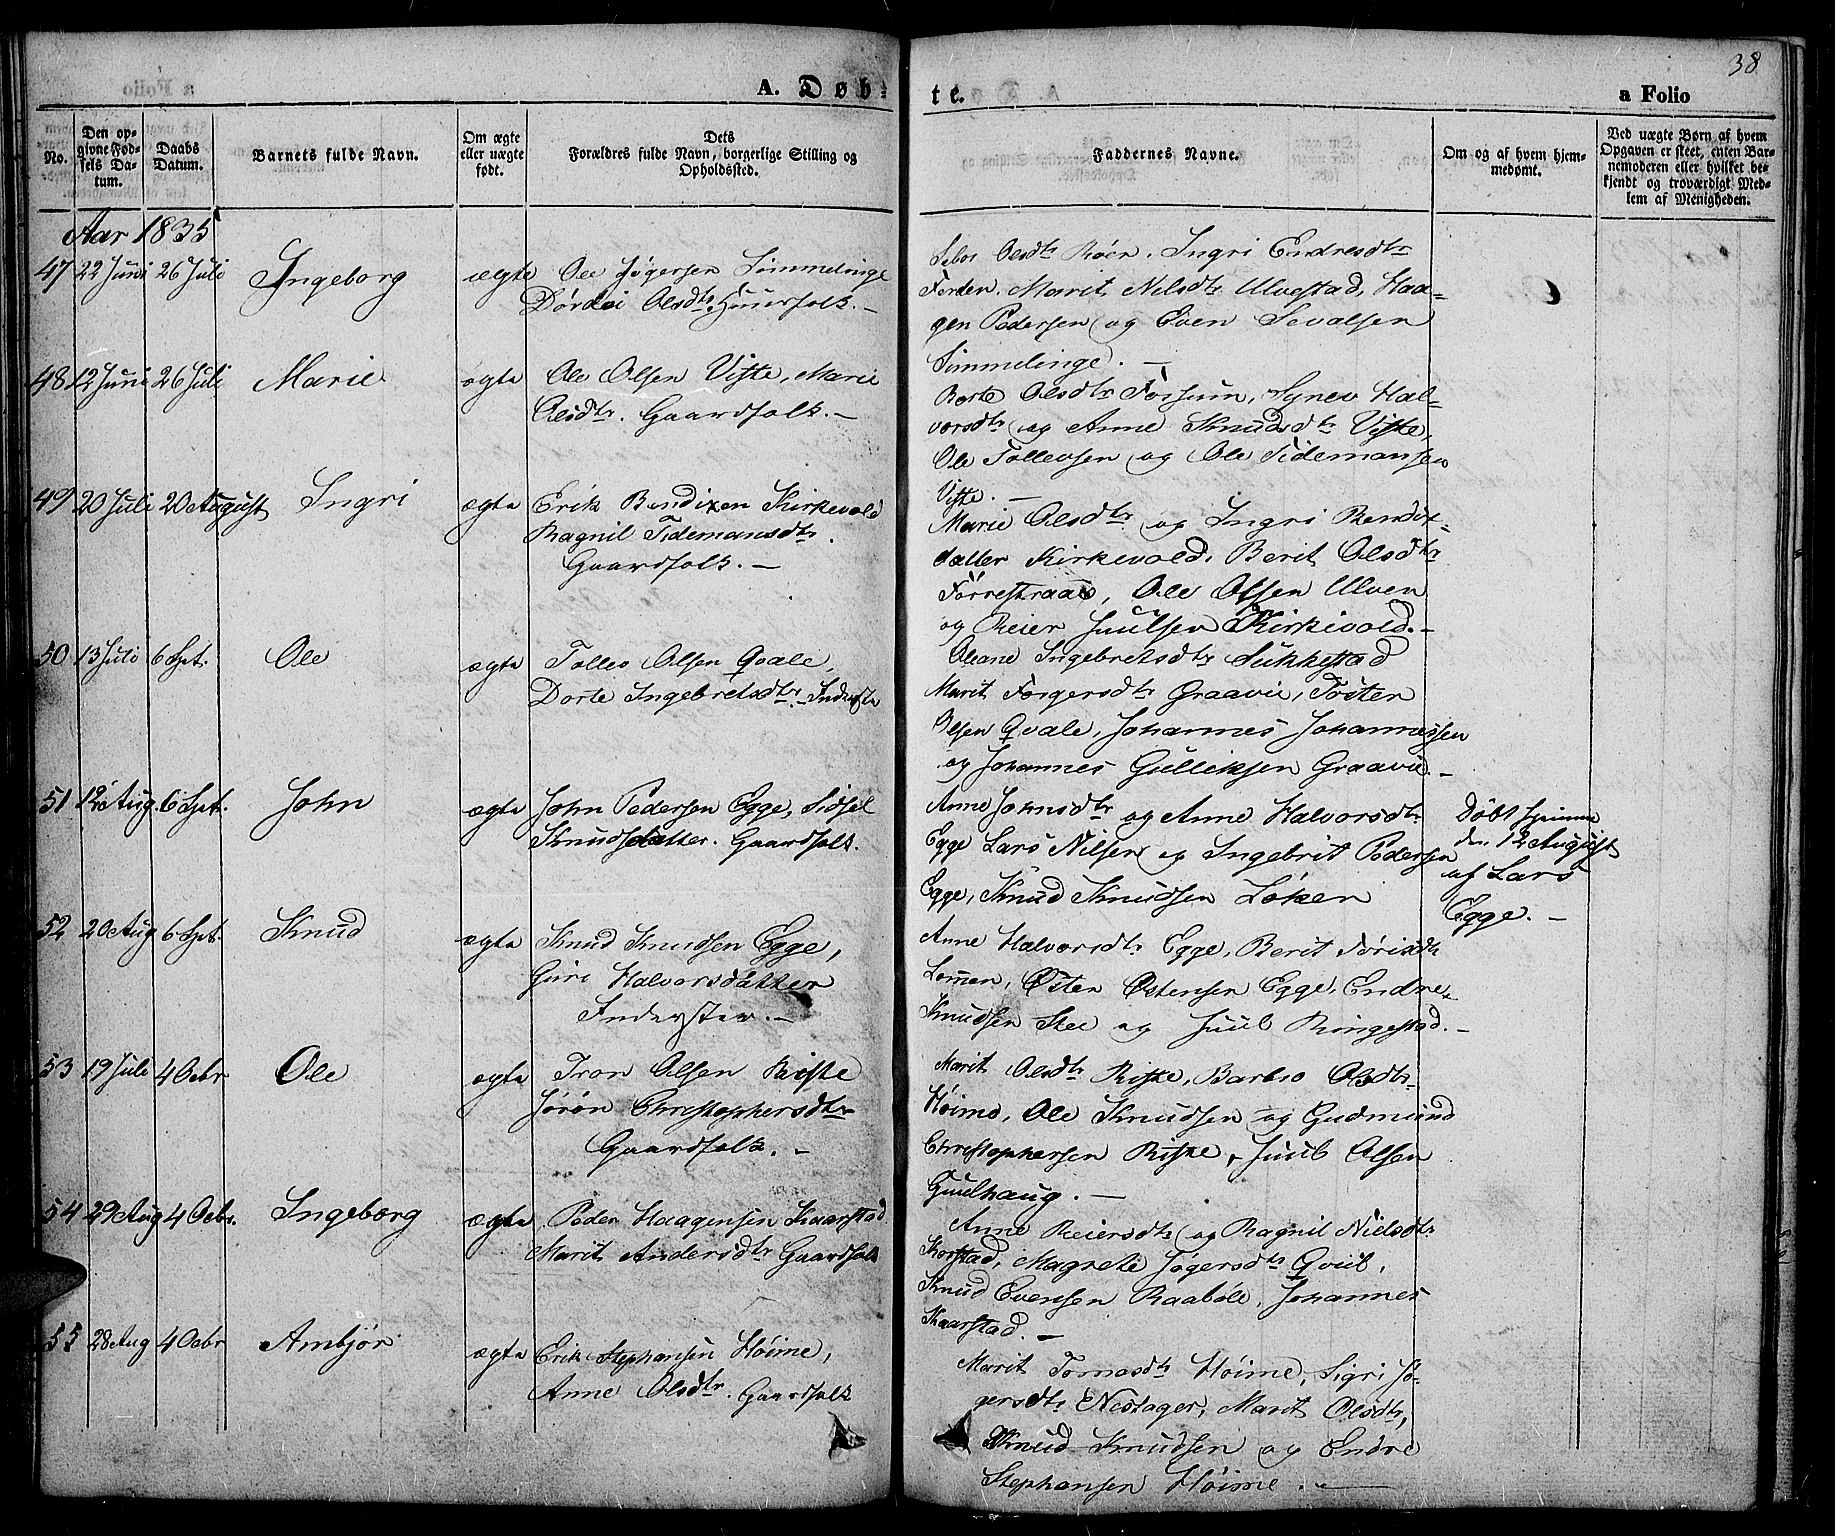 38
A. Døb-
te.
a Folio
No.
Den op-
givne Fød-
sels Da-
tum.
Daabs
Datum.
Barnets fulde Navn.
Om ægte
eller uægte
født.
Dets
Forældres fulde Navn, borgerlige Stilling og
Opholdssted.
Faddernes Navne.
Om og af hvem hjem-
medømt.
Ved uægte Børn af hvem
Opgaven er skeet, enten Bar-
nemoderen eller hvilket be-
kjendt og troværdigt Med-
lem af Menigheden.
Aar 1835
47 22 Juni 26 Juli Ingeborg ægte Ole Jøgersen Simmelinge
Dordei Olsdtr. Huusfolk. -
Olsdtr Røen. Ingri Endresdtr
Marit Nilsdtr Ulvestad, Haa-
gen Pedersen og Even Sevalsen
Simmelinge. -
48 12 Juni 26 Juli Marie ægte Ole Olsen Viste, Marie
Olsdtr. Gaardfolk. -
Berte Olsdtr Fossum, Synev Hal-
vorsdtr og Anne Knudsdtr Viste,
Ole Tollevsen og Ole Tidemansen
Viste. -
49 20 Juli 20 August Ingri ægte Erik Bendixen Kirkevold
Ragnil Tidemansdtr.
Gaardfolk. -
Marie Olsdtr og Ingri Bendix-
datter Kirkevold. Berit Olsdtr
Førrestraae, Ole Olsen Ulven
og Reier Juulsen Kirkevold. -
50 13 Juli 6 Spt. Ole ægte Tollev Olsen Qvale,
Dorte Ingebretsdtr. - Inderste
Oleane Ingebretsdtr Sukkestad
Marit Torgersdtr Graavie, Tosten
Olsen Qvale, Johannes Johannessen
og Johannes Gulliksen Graavie. -
51 12 Aug. 6 Spt. John ægte John Pedersen Egge, Sidsel
Knudsdatter. Gaardfolk.
Anne Johnsdtr og Anne Halvorsdtr
Egge Lars Nilsen og Ingebrit Pedersen
Egge, Knud Knudsen Løken
Døbt hjemme
den 12 August
af Lars
Egge. -
52 20 Aug 6 Spt. Knud ægte Knud Knudsen Egge,
Guri Halvorsdatter
Inderster. -
Anne Halvorsdtr Egge, Berit
Lomen, Østen Østensen Egge, Endre
Knudsen Stee og Juul Ringestad. -
53 19 Juli 4 Octbr Ole ægte Tron Olsen Riste
Jørøn Christophersdtr
Gaardfolk. -
Marit Olsdtr Riste, Barbro Olsdtr
Høime, Ole Knudsen og Gudmund
Christophersen Riste, Juul Olsen
Guulhaug. -
54 29 Aug 4 Octbr. Ingeborg ægte Peder Haagensen Kaarstad
Marit Andersdtr Gaardfolk
Anne Reiersdtr og Ragnil Nielsdtr
Korstad, Magrete Jøgersdtr Qviil,
Knud Evensen Raabøle, Johannes
Kaarstad. -
55 28 Aug 4 Octbr Ambjør ægte Erik Stephansen Høime,
Anne Olsdtr. Gaardfolk
Marit Tomasdtr Høime, Sigri Jø-
gersdtr Nedtager, Marit Olsdtr,
Knud Knudsen og Endre
Stephansen Høime. -